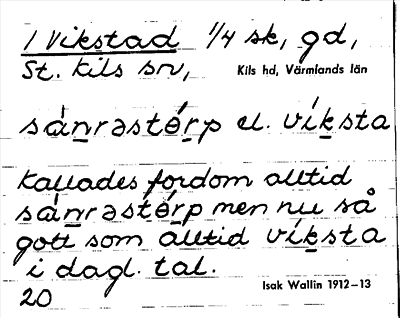 1 Vikstad 1/4 sk, gd,
St. Kils sn,
Kils hd, Värmlands län
sán̲rəstér̲p el. vík̲sta
kallades fordom alltid
sán̲rəstér̲p men nu så
gott som alltid vík̲sta
i dagl. tal.
Isak Wallin 1912–13
20